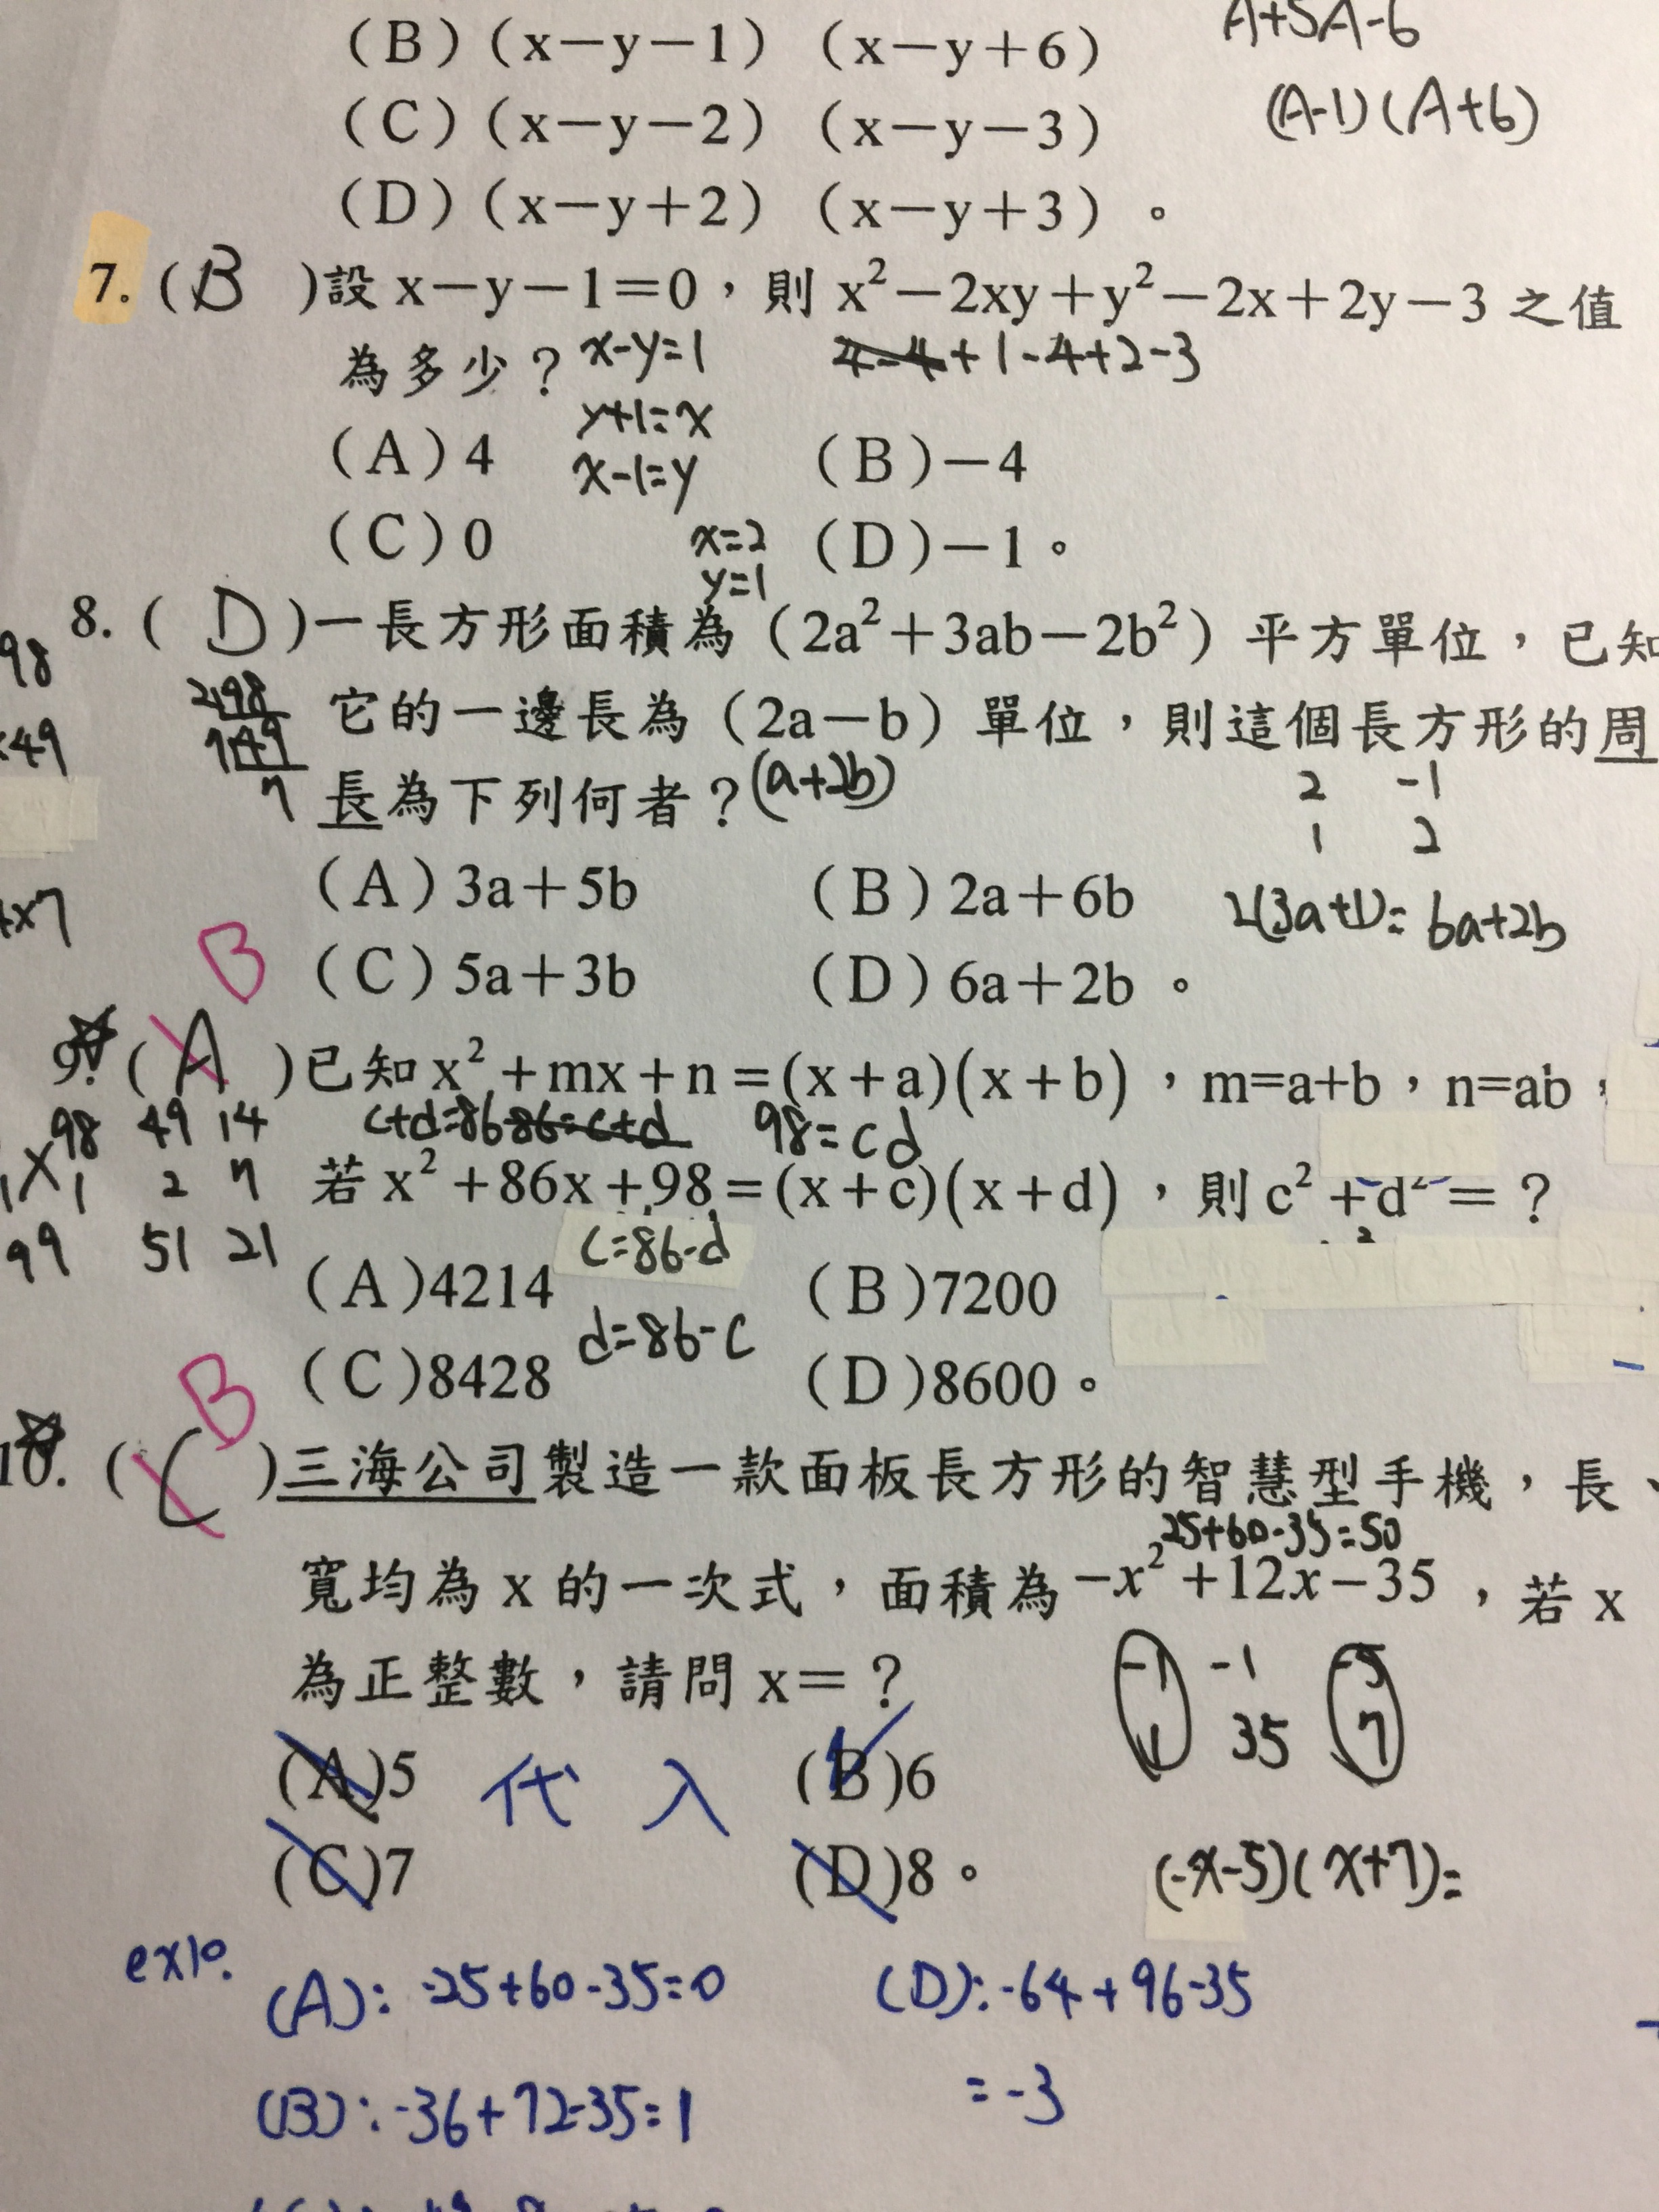 (B)(x−y−1) (x−y+6)
A+5A-6
(C)(x−y−2) (x−y−3)
(A-1)(A+6)
(D)(x−y+2) (x−y+3)。
7.(B)設 x−y−1=0，則 x²−2xy+y²−2x+2y−3 之值
為多少？ x-y=1 4-4+1-4+2-3
y+1=x
(A)4 (B)−4
x-1=y
(C)0 (D)−1。
x=2
y=1
8.(D)一長方形面積為(2a²+3ab−2b²)平方單位，已知
98
2 98
它的一邊長為(2a−b)單位，則這個長方形的周
49
7 49
7
長為下列何者？(a+2b)
2 -1
1 2
(A)3a+5b (B)2a+6b
2(3a+1)= 6a+2b
×7
B
(C)5a+3b (D)6a+2b。
9.(A)已知 x²+mx+n=(x+a)(x+b)，m=a+b，n=ab，
98 49 14
c+d=86 86=c+d 98=cd
1 2 7
若 x²+86x+98=(x+c)(x+d)，則 c²+d²=？
99 51 21
c=86-d
(A)4214 (B)7200
d=86-c
(C)8428 (D)8600。
B
10.(C)三海公司製造一款面板長方形的智慧型手機，長、
25+60-35=50
寬均為 x 的一次式，面積為 −x²+12x−35，若 x
為正整數，請問 x=？
-1 -1 -5
1 35 7
(A)5 代入 (B)6
(C)7 (D)8。
(-x-5)(x+7)=
ex10.
(A): -25+60-35=0 (D): -64+96-35
= -3
(B): -36+72-35=1